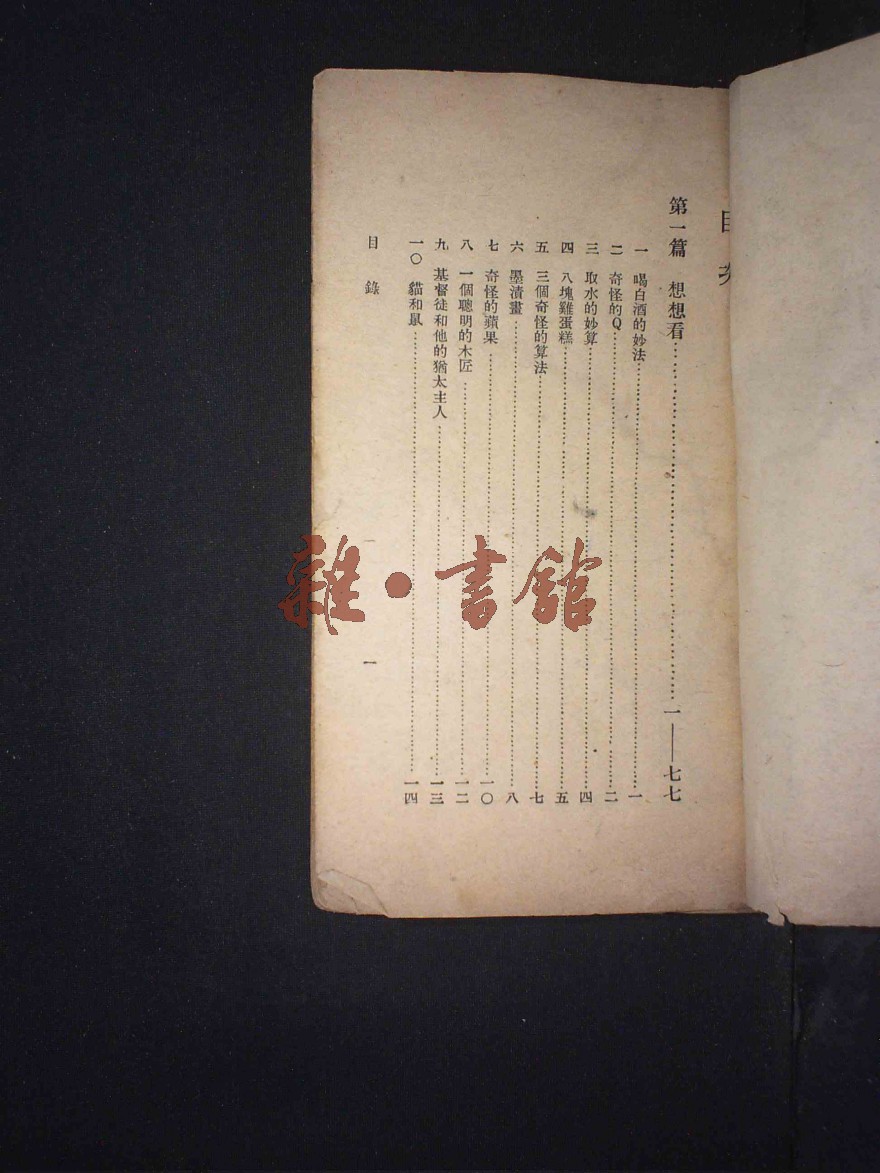 目
第一篇 想想看……一——七七
一 喝白酒的妙法……一
二 奇怪的Q……二
三 取水的妙算……四
四 八塊雞蛋糕……五
五 三個奇怪的算法……七
六 墨漬畫……八
七 奇怪的蘋果……一〇
八 一個聰明的木匠……一二
九 基督徒和他的猶太主人……一三
一〇 貓和鼠……一四
目錄 一
雜·書館